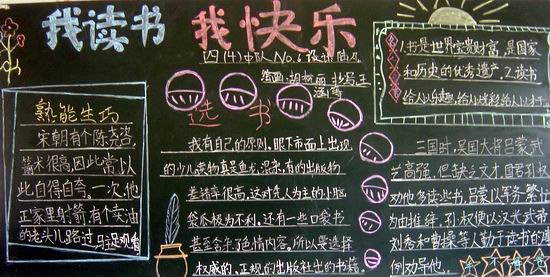 我读书 我快乐
四(4)中队 No.6
选书
我有自己的原则,眼下市面上出现
的少儿读物真是鱼龙混杂,有的出版物
差错率很高,这对先入为主的小脑
袋瓜极为不利,还有一些口袋书
甚至含有色情内容。所以要选择
权威的、正规的出版社出的书籍。
熟能生巧
宋朝有个陈尧咨,
箭术很高,因此常以
此自得自夸。一次,他
正家里射箭,有个卖油
的老头儿路过,驻足观看
1.书是世界宝贵财富,是国家
和历史的优秀遗产。2.读书
给人以乐趣,给人以光彩,给人以才干。
三国时,吴国大将吕蒙武
艺高强,但缺少文才,国君孙权
劝他多读些书,吕蒙以军务繁忙
为由推辞,孔权便以汉光武帝
刘秀和曹操等人勤于读书的
例劝导他。